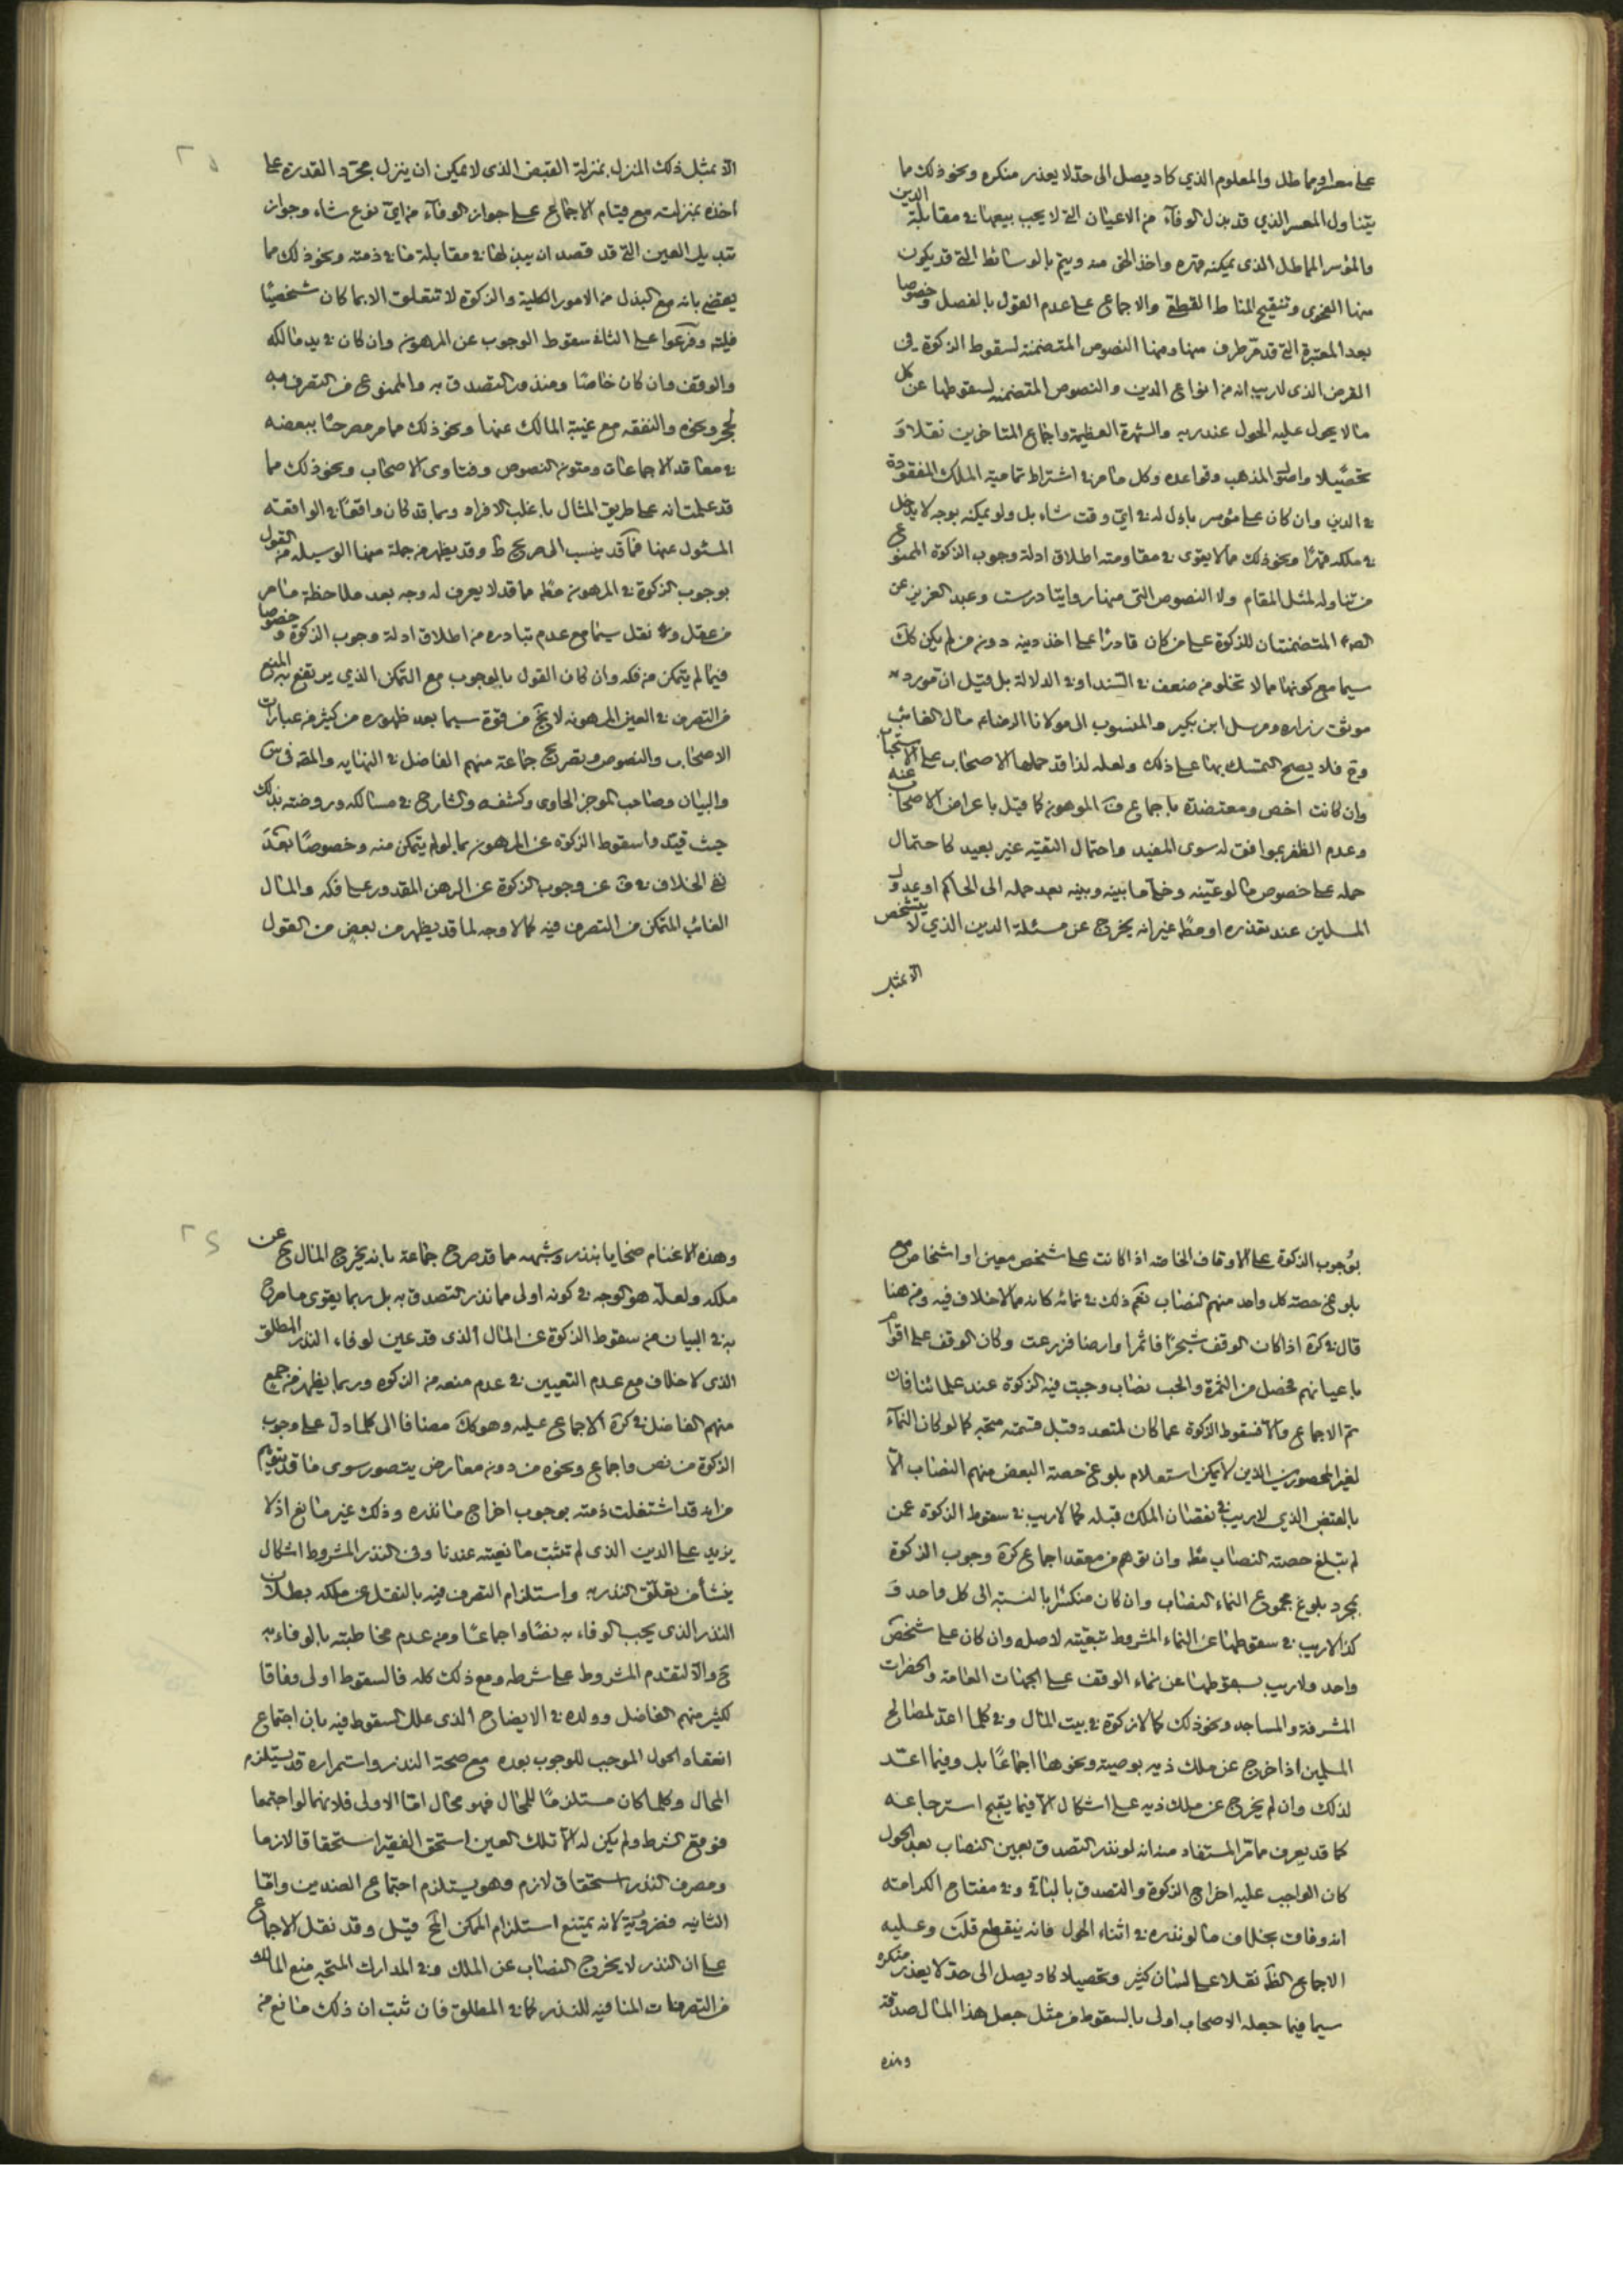 على معسر او مماطل والمعلوم الذي كاد يصل الى حد لا يعذر منكره ونحو ذلك مما
يتناول المعسر الذي قد بذل الوفآء من الاعيان التي لا يجب بيعها في مقابلة الدين
والمؤسر المماطل الذى يمكنه قهره واخذ الحق منه ويتم بالوسائط التي قد يكون
منها الفحوى وتنقيح المناط القطعي والاجماع على عدم القول بالفصل وخصوصا
بعد المعتبرة التي قد مر طرف منها ومنها النصوص المتضمنة لسقوط الزكوة في
القرض الذى لا ريب انه من انواع الدين والنصوص المتضمنه لسقوطها عن كل
ما لا يحول عليه الحول عند ربه والشهرة العظيمة واجماع المتاخرين نقلا و
تحصيلا واصول المذهب وقواعده وكل ما مر في اشتراط تمامية الملك المفقودة
في الدين وان كان على مؤسر باذل له في اي وقت شاء بل ولو يمكنه بوجه لا يدخل
في ملكه قهرا ونحو ذلك مما لا يقوى في مقاومته اطلاق ادلة وجوب الزكوة الممنوع
من تناوله لمثل المقام ولا النصوص التى منها روايتا درست وعبد العزيز عن
الصم المتضمنتان للزكوة على من كان قادرا على اخذ دينه دون من لم يكن كك
سيما مع كونها مما لا تخلو من ضعف في السند او في الدلالة بل قيل ان مورد
موثق زراره ومرسل ابن بكير والمنسوب الى مولانا الرضا م مال الغائب
وح فلا يصح التمسك بها على ذلك ولعله لذا قد حملها الاصحاب على الاستحباب
وان كانت اخص ومعتضدة باجماع ف الموهونه كما قيل باعراض الاصحاب عنه
وعدم الظفر بموافق له سوى المفيد واحتمال التقيه غير بعيد كاحتمال
حمله على خصوص ما لو عينه وخلا ما بينه وبينه بعد حمله الى الحاكم او عدول
المسلمين عند تعذره او مط غير انه يخرج عن مسئلة الدين الذي لا يتشخص
الا بمثل
الا بمثل ذلك المنزل بمنزلة القبض الذى لا يمكن ان ينزل مجرد القدرة على
اخذه بمنزلته مع قيام الاجماع على جواز الوفآء من اي نوع شاء وجواز
تبديل العين التي قد قصد ان يبذلها في مقابلة ما في ذمته ونحو ذلك مما
يقضي بانه مع البذل من الامور الكلية والزكوة لا تتعلق الا بما كان شخصيا
فليته وفرعوا على الثاني سقوط الوجوب عن المرهون وان كان في يد مالكه
والوقف وان كان خاصا ومنذور التصدق به والممنوع من التصرف به
لحجر ونحوه والنفقه مع غيبة المالك عنها ونحو ذلك مما مر مصرحا ببعضه
في معاقد الاجماعات ومتون النصوص وفتاوى الاصحاب ونحو ذلك مما
قد علمت انه على طريق المثال باغلب الافراد وربما قد كان واقعا في الواقعه
المسئول عنها فما قد ينسب الى صريح ط وقد يظهر من جملة منها الوسيله من القول
بوجوب الزكوة في المرهون مط مما قد لا يعرف له وجه بعد ملاحظة ما مر
من عقل و نقل سيما مع عدم تبادره من اطلاق ادلة وجوب الزكوة وخصوصا
فيما لم يتمكن من فكه وان كان القول بالوجوب مع التمكن الذي يرتفع به المنع
من التصرف في العين المرهونه لا يخ من قوة سيما بعد ظهوره من كثير من عبارات
الاصحاب والنصوص وتصريح جماعة منهم الفاضل في النهايه والمقه في س
والبيان وصاحب الموجز الحاوى وكشفه والشارح في مسالكه وروضته بذلك
حيث قيدوا سقوط الزكوة عن المرهون بما لو لم يتمكن منه وخصوصا بعد
نفي الخلاف في ف عن وجوب الزكوة عن الرهن المقدور على فكه والمال
الغائب المتمكن من التصرف فيه كما لا وجه لما قد يظهر من بعض من القول
بوجوب الزكوة على الاوقاف الخاصه اذا كانت على شخص معين او اشخاص مع
بلوغ حصته كل واحد منهم النصاب نعم ذلك في نمائه كانه مما لا خلاف فيه ومن هنا
قال في كرة اذا كان الوقف شجرا فاثمر او ارضا فزرعت وكان الوقف على اقوام
باعيانهم فحصل من الثمرة والحب نصاب وجبت فيه الزكوة عند علمائنا فان
تم الاجماع والا فسقوط الزكوة عما كان لمتعدد قبل قسمته متجه كما لو كان النمآء
لغير المحصورين الذين لا يمكن استعلام بلوغ حصة البعض منهم النصاب الا
بالقبض الذي لا ريب في نقصان الملك قبله كما لا ريب في سقوط الزكوة عمن
لم يتبلغ حصته النصاب مط وان توهم من معقد اجماع كرة وجوب الزكوة
بمجرد بلوغ مجموع النماء النصاب وان كان منكسرا بالنسبة الى كل واحد و
كذا لا ريب في سقوطها عن النماء المشروط تبعيته لاصله وان كان على شخص
واحد ولا ريب بسقوطها عن نماء الوقف على الجهات العامة والحضرات
المشرفة والمساجد ونحو ذلك كما لا زكوة في بيت المال وفي كلما اعد لمصالح
المسلمين اذا خرج عن ملك ذيه بوصية ونحوها اجماعا بل وفيما اعد
لذلك وان لم يخرج عن ملك ذيه على اشكال الا فيما يقبح استرجاعه
كما قد يعرف مما مر المستفاد منه انه لو نذر التصدق بعين النصاب بعد الحول
كان الواجب عليه اخراج الزكوة والتصدق بالباقي وفي مفتاح الكرامته
انه وفاقي بخلاف ما لو نذره في اثناء الحول فانه ينقطع قلت وعليه
الاجماع الظ نقلا على لسان كثير وتحصيلا كاد يصل الى حد لا يعذر منكره
سيما فيما جعله الاصحاب اولى بالسقوط من مثل جعل هذا المال صدقة
وهذه
وهذه الاغنام ضحايا بنذر وشبهه مما قد صرح جماعة بانه يخرج المال ح عن
ملكه ولعله هو الوجه في كونه اولى مما نذر التصدق به بل ربما يقوى ما صرح
به في البيان من سقوط الزكوة عن المال الذى قد عين لوفاء النذر المطلق
الذى لا خلاف مع عدم التعيين في عدم منعه من الزكوه وربما يظهر من جمع
منهم الفاضل في كرة الاجماع عليه وهو كك مضافا الى كلما دل على وجوب
الزكوة من نص واجماع ونحوه من دون معارض يتصور سوى ما قد يتوهم
من انه قد اشتغلت ذمته بوجوب اخراج ما نذره وذلك غير مانع اذ لا
يزيد على الدين الذى لم تثبت مانعيته عندنا وفى النذر المشروط اشكال
ينشأ من تعلق النذر به واستلزام التصرف فيه بالنقل عن ملكه بطلان
النذر الذى يجب الوفاء به نصا واجماعا ومن عدم مخاطبته بالوفاء به
ح والا لتقدم المشروط على شرطه ومع ذلك كله فالسقوط اولى وفاقا
لكثير منهم الفاضل وولده في الايضاح الذى علل السقوط فيه بان اجتماع
انعقاد الحول الموجب للوجوب بوده مع صحة النذر واستمراره قد يستلزم
المحال وكلما كان مستلزما للمحال فهو محال اما الاولى فلانهما لو اجتمعا
فوقع الشرط ولم يكن له الا تلك العين استحق الفقير استحقاقا لازما
ومصرف النذر استحقاق لازم وهو يستلزم اجتماع الضدين واما
الثانيه فضروريه لانه يمتنع استلزام الممكن المح قيل وقد نقل الاجماع
على ان النذر لا يخرج النصاب عن الملك وفي المدارك المتجه منع المالك
من التصرفات المنافيه للنذر كما في المطلق فان ثبت ان ذلك مانع من